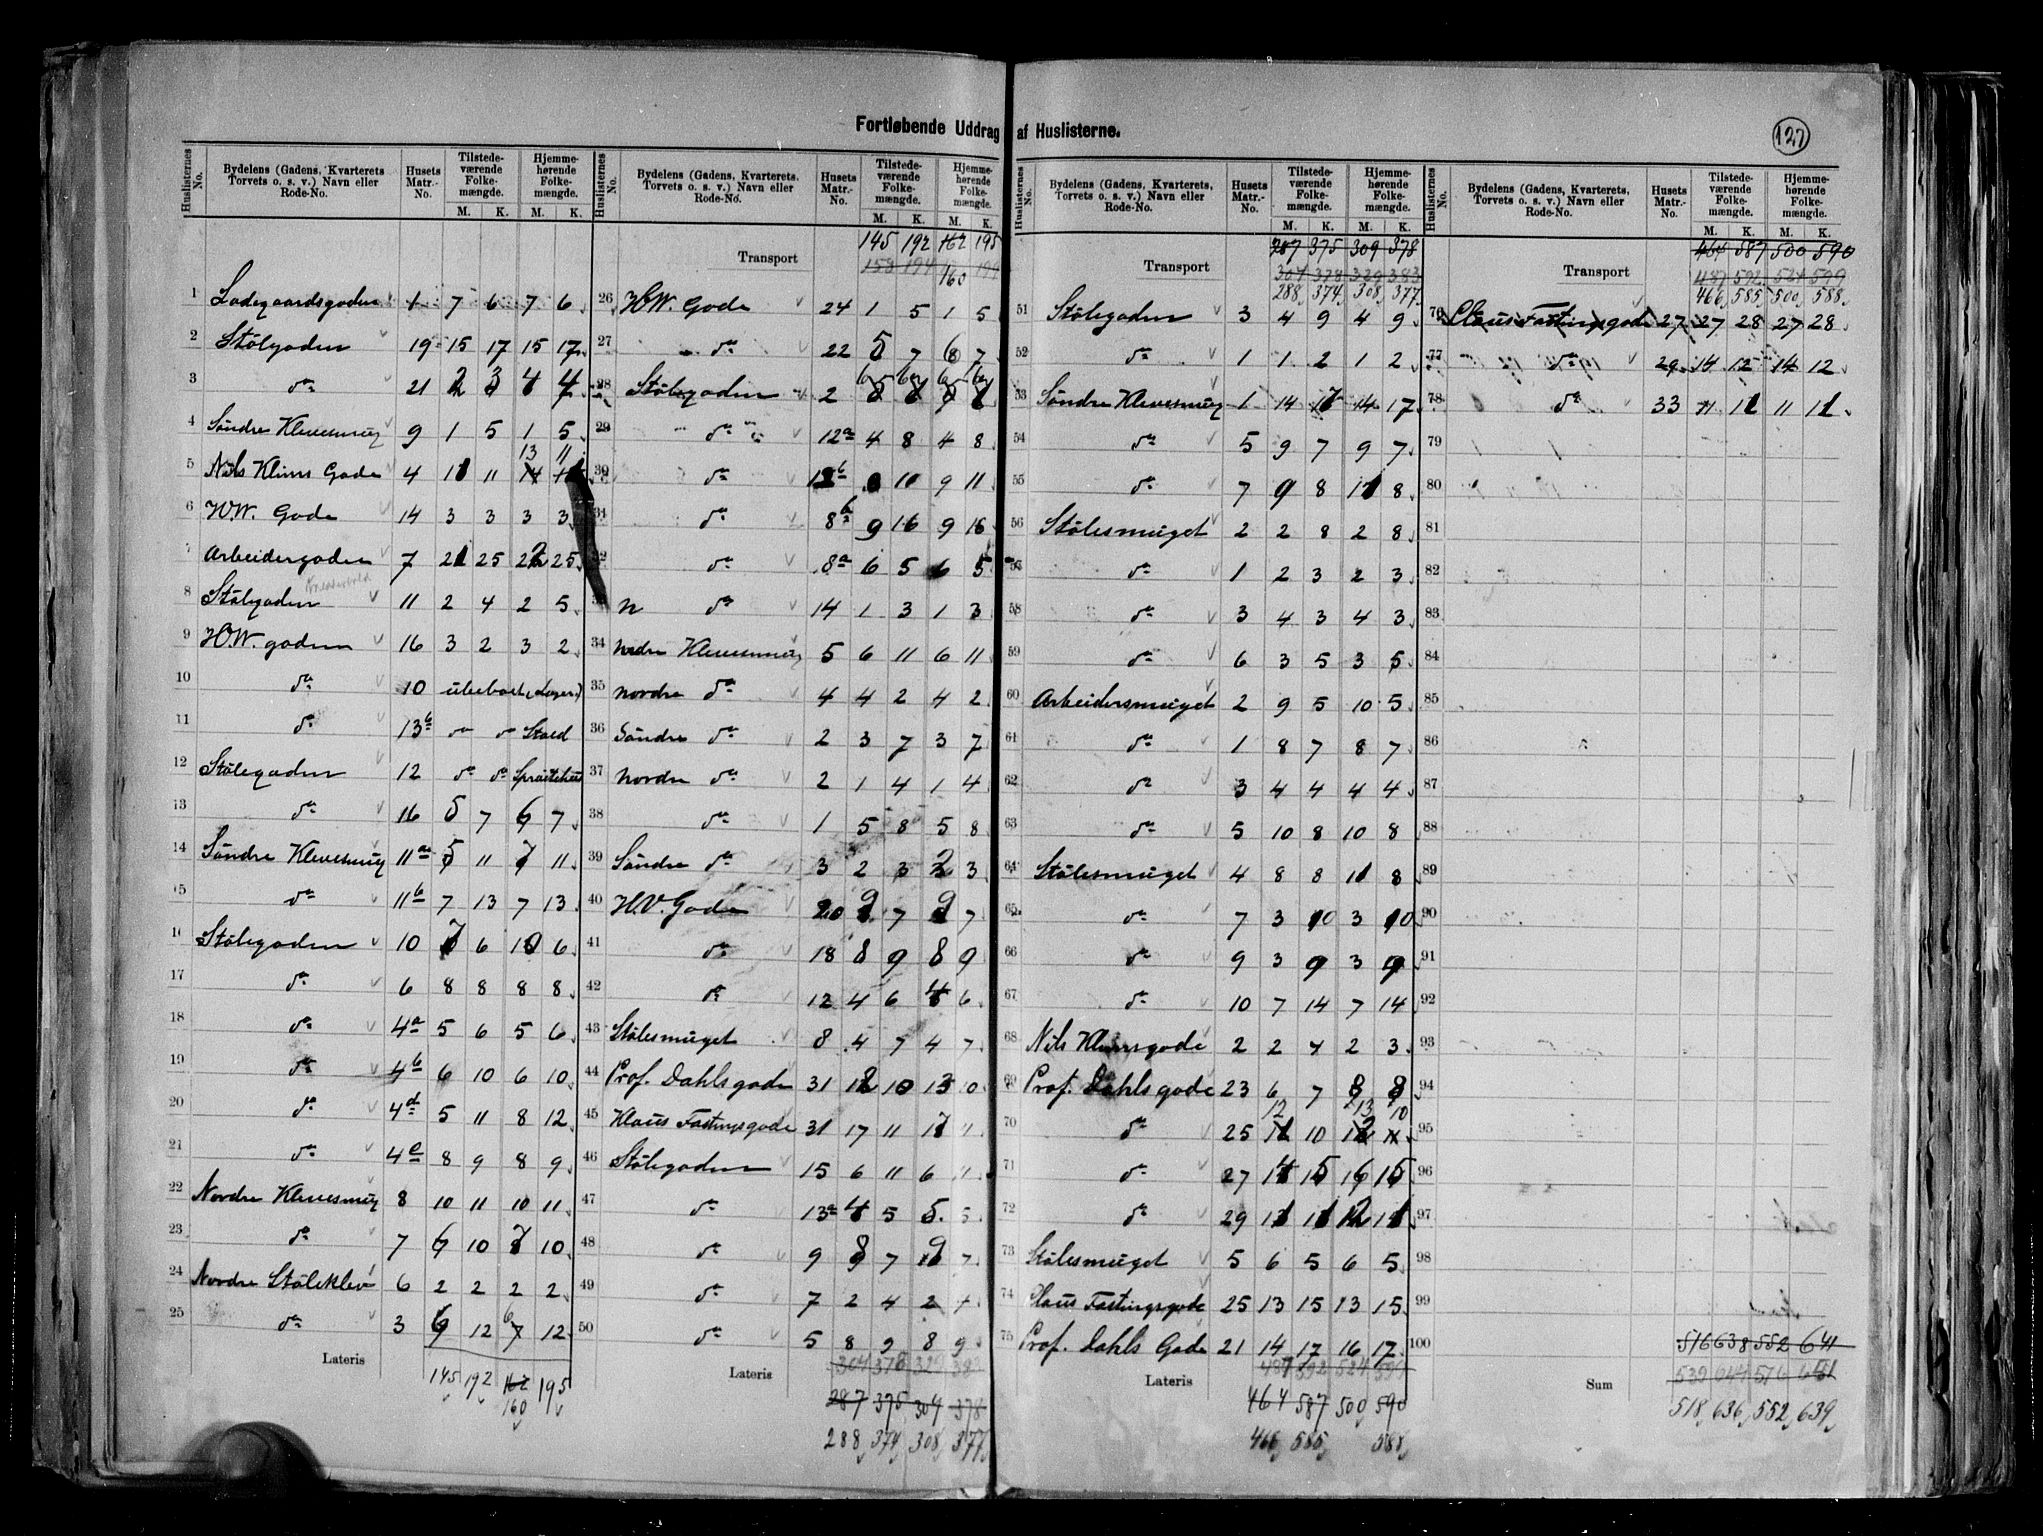 Fortløbende Uddrag af Huslisterne.
127
Huslisternes No. Bydelens (Gadens, Kvarterets Torvets o. s. v.) Navn eller Rode-No. Husets Matr.-No. Tilstedeværende Folkemængde. M. K. Hjemmehørende Folkemængde. M. K.
1 Ladegaardsgaden 1 7 6 7 6
2 Stölegaden 19 15 17 15 17
3 do 21 2 3 4 4
4 Söndre Klevesmug 9 1 5 1 5
13 11
5 Nils Klims Gade 4 11 11 14
6 H.W. Gade 14 3 3 3 3
7 Arbeidergaden 7 21 25 22 25
8 Stölegaden 11 2 4 2 5
9 H.W. gaden 16 3 2 3 2
10 do 10 ubeboet (Lager)
11 do 13b do do Stald
12 Stölegaden 12 do do Sprøitehus
13 do 16 5 7 6 7
14 Söndre Klevesmug 11a 5 11 7 11
15 do 11b 7 13 7 13
16 Stölegaden 10 7 6 10 6
17 do 6 8 8 8 8
18 do 4a 5 6 5 6
19 do 4b 6 10 6 10
20 do 4d 5 11 8 12
21 do 4e 8 9 8 9
22 Nordre Klevesmug 8 10 11 10 11
23 do 7 6 10 7 10
24 Nordre Stöleklev 6 2 2 2 2
25 do 3 6 12 7 12
Lateris 145 192 162 195
160
Huslisternes No. Bydelens (Gadens, Kvarterets, Torvets o. s. v.) Navn eller Rode-No. Husets Matr.-No. Tilstedeværende Folkemængde. M. K. Hjemmehørende Folkemængde. M. K.
145 192 162 195
Transport 158 194 160
26 H.W. Gade 24 1 5 1 5
27 do 22 5 7 8 7
28 Stölegaden 2
29 do 12a 4 8 4 8
30 do 12b 10 9 11
31 do 8b 9 16 9 16
32 do 8a 6 5 6 5
do 14 1 3 1 3
34 Nedre Klevesmug 5 6 11 6 11
35 Nordre do 4 4 2 4 2
36 Söndre do 2 3 7 3 7
37 Nordre do 2 1 4 1 4
38 do 1 5 8 5 8
39 Söndre do 3 2 3 2 3
40 H.V. Gaden 20 9 7 9 7
41 do 18 8 9 8 9
42 do 12 4 6 4 6
43 Stölesmuget 8 4 7 4 7
44 Prof. Dahlsgade 31 12 10 13 10
45 Klaus Fastingsgade 31 17 11 17 11
46 Stölegaden 15 6 11 6 11
47 do 13a 4 5 5 5
48 do 9 8 7 9 7
49 do 7 2 4 2 4
50 do 5 8 9 8 9
Lateris 304 378 329 383
287 375 309 378
288 374 308 377
Huslisternes No. Bydelens (Gadens, Kvarterets, Torvets o. s. v.) Navn eller Rode-No. Husets Matr.-No. Tilstedeværende Folkemængde. M. K. Hjemmehørende Folkemængde. M. K.
287 375 309 378
Transport 304 378 329 383
288 374 308 377
51 Stölegaden 3 4 9 4 9
52 do 1 1 2 1 2
53 Söndre Klevesmug 1 14 17 14 17
54 do 5 9 7 9 7
55 do 7 9 8 11 8
56 Stölesmuget 2 2 8 2 8
57 do 1 2 3 2 3
58 do 3 4 3 4 3
59 do 6 3 5 3 5
60 Arbeidersmuget 2 9 5 10 5
61 do 1 8 7 8 7
62 do 3 4 4 4 4
63 do 5 10 8 10 8
64 Stölesmuget 4 8 8 11 8
65 do 7 3 10 3 10
66 do 9 3 9 3 9
67 do 10 7 14 7 14
68 Nils Klimsgade 2 2 4 2 3
69 Prof. Dahlsgade 23 6 7 8 8
12 13 10
70 do 25 11 10 12 11
71 do 27 14 15 16 15
72 do 29 11 11 12 11
73 Stölesmuget 5 6 5 6 5
74 Claus Fastingsgade 25 13 15 13 15
75 Prof. Dahls Gade 21 14 17 16 17
Lateris 487 592 524 599
464 587 500 590
466 585 588
Huslisternes No. Bydelens (Gadens, Kvarterets Torvets o. s. v.) Navn eller Rode-No. Husets Matr.-No. Tilstedeværende Folkemængde. M. K. Hjemmehørende Folkemængde. M. K.
464 587 500 590
Transport 487 592 524 599
466 585 500 588
76 Claus Fastingsgade 27 27 28 27 28
77 do 29 14 12 14 12
78 do 33 11 11 11 11
79
80
81
82
83
84
85
86
87
88
89
90
91
92
93
94
95
96
97
98
99
100
516 638 552 641
Sum 539 644 576 651
518 636 552 639